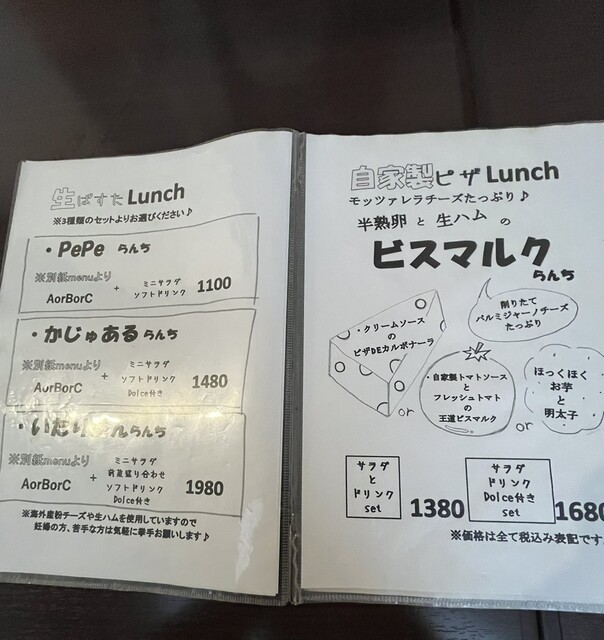 生ぱすた Lunch
※3種類のセットよりお選びください♪
・PePe らんち
※別紙menuより
AorBorC
+
ミニサラダ
ソフトドリンク
1100
・かじゅある らんち
※別紙menuより
AorBorC
+
ミニサラダ
ソフトドリンク
Dolce付き
1480
らんち
※別紙menuより
AorBorC
+
ミニサラダ
前菜盛り合わせ
ソフトドリンク
Dolce付き
1980
※海外産粉チーズや生ハムを使用していますので
妊婦の方、苦手な方は気軽に挙手お願いします♪
自家製ピザ Lunch
モッツァレラチーズたっぷり♪
半熟卵 と 生ハム の
ビスマルク
らんち
削りたて
パルミジャーノチーズ
たっぷり
・クリームソース
の
ピザDEカルボナーラ
or
・自家製トマトソース
と
フレッシュトマト
の
王道ビスマルク
or
ほっくほく
お芋
と
明太子
サラダ
と
ドリンク
set
1380
サラダ
ドリンク
Dolce付き
set
1680
※価格は全て税込み表記です